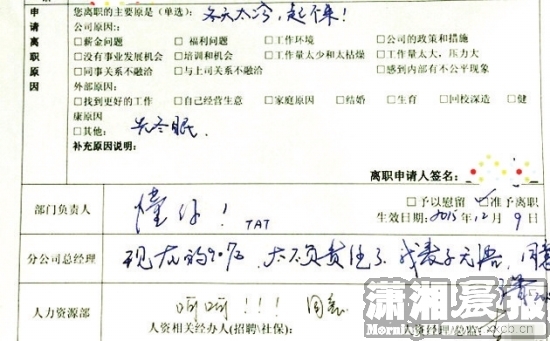 申请离职原因
您离职的主要原是(单选): 冬天太冷,起不来!
公司原因::
□薪金问题 □福利问题 □工作环境 □公司的政策和措施
□没有事业发展机会 □培训和机会 □工作量太少和太枯燥 □工作量太大,压力大
□同事关系不融洽 □与上司关系不融洽 □感到内部有不公平现象
外部原因:
□找到更好的工作 □自己经营生意 □家庭原因 □结婚 □生育 □回校深造 □健
康原因
□其他: 先冬眠.
补充原因说明:
离职申请人签名:
部门负责人 懂你! TAT
□予以慰留 准予离职
生效日期: 2015年12月9日
分公司总经理 现在的90后,太不负责任了.我表示无语,同意
人力资源部 呵呵!!! 同意
人资相关经办人(招聘\社保): 人资经理/总监:
潇湘晨报